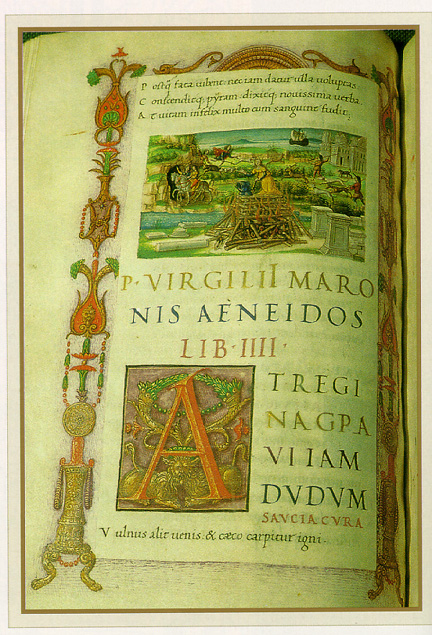 P ostq; fata iubent: nec iam datur ulla voluptas.
C onscenditq; pyram: dixitq; nouissima uerba.
A t uitam infelix multo cum sanguine fudit.
P·VIRGILII MARO
NIS AENEIDOS
LIB·IIII·
A TREGI
NAGRA
VI IAM
DVDVM
SAVCIA CVRA
V ulnus alit uenis: & cæco carpitur igni.